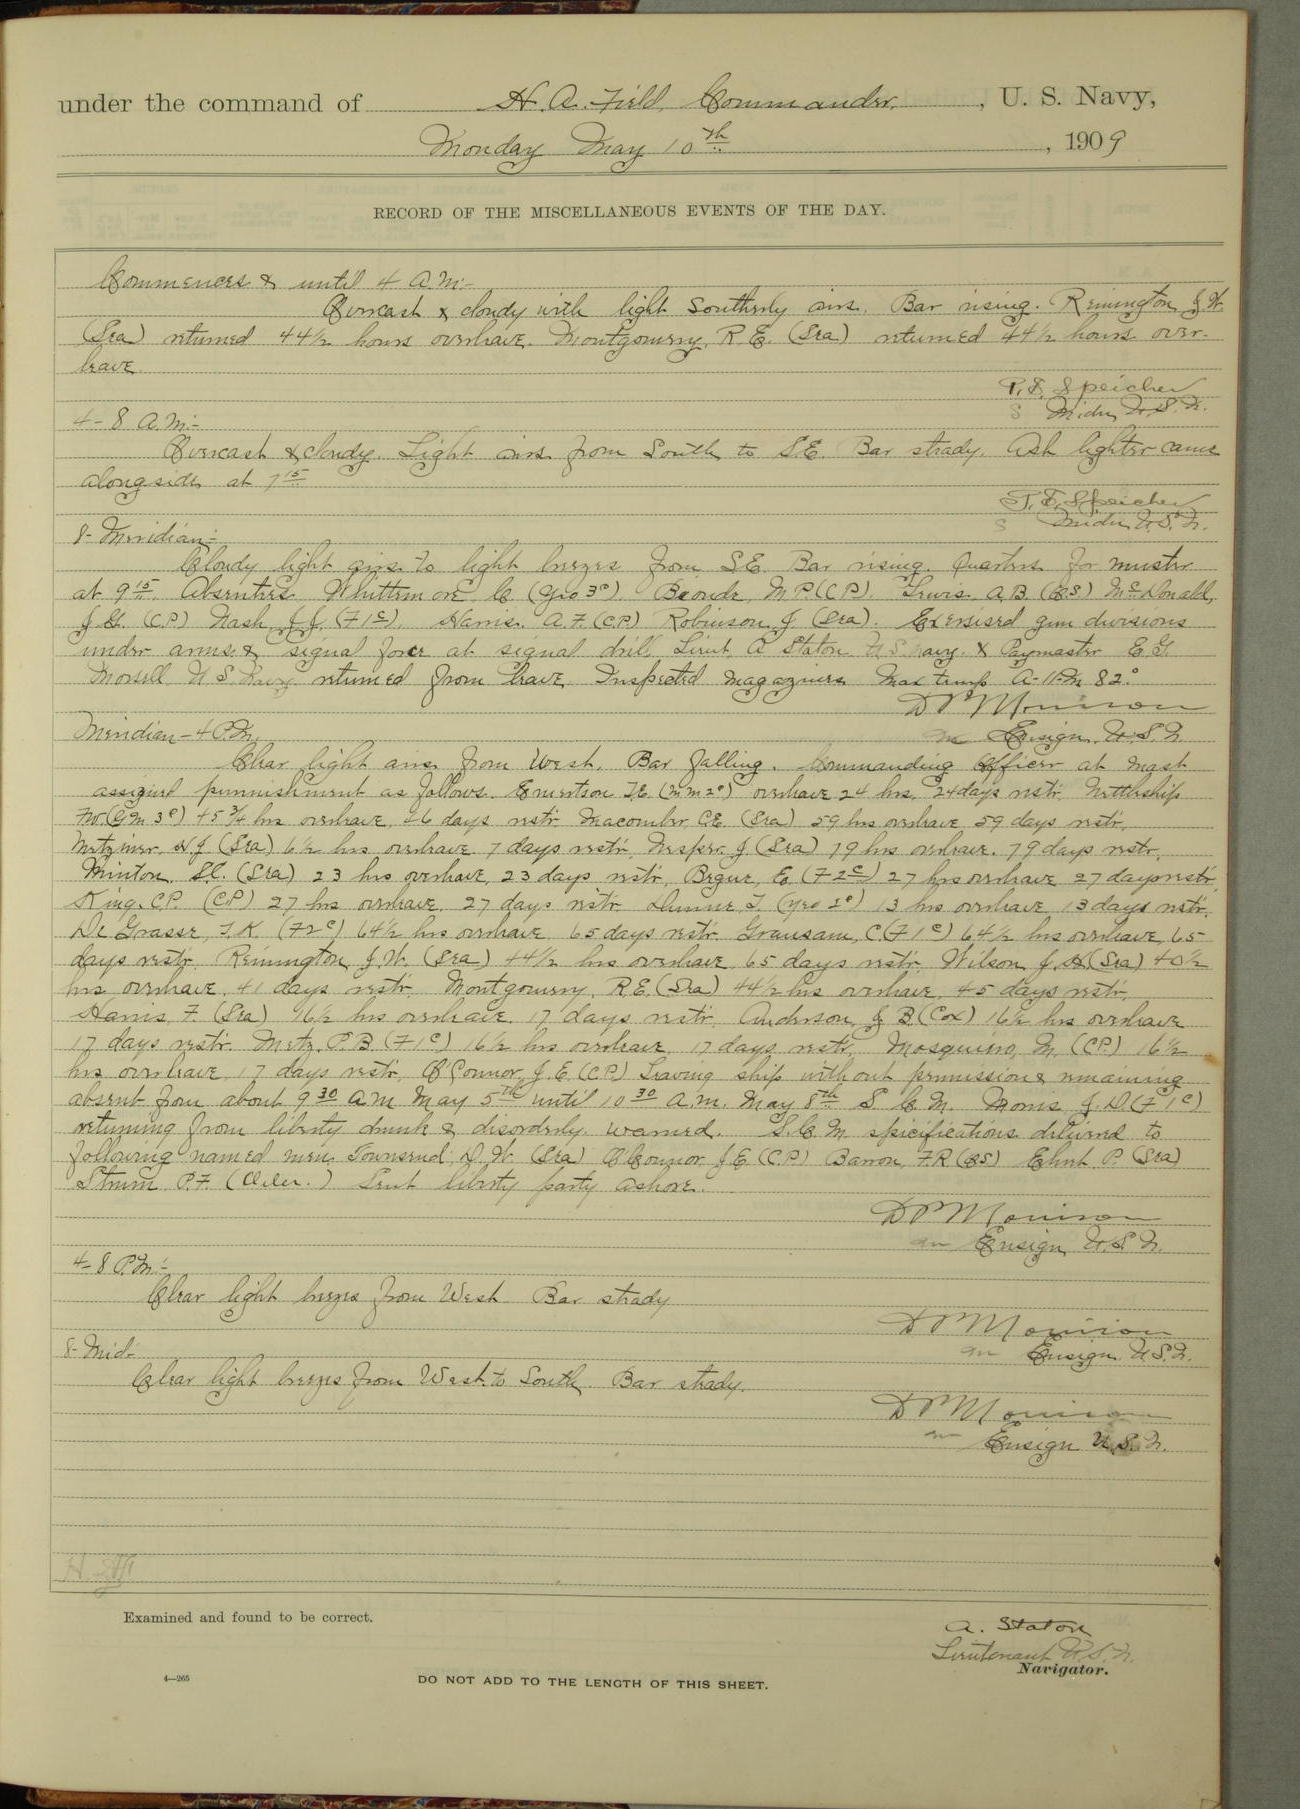 under the command of H. A. Field, Commander, U. S. Navy,
Monday May 10th, 1909
RECORD OF THE MISCELLANEOUS EVENTS OF THE DAY.
Commences & until 4 A.M:-
Overcast & cloudy with light Southerly airs. Bar rising. Remington J.W.
(Sea) returned 44½ hours overleave. Montgomery, R.E. (Sea) returned 44½ hours over-
leave.
Speicher
Midn U.S.N.
4-8 A.M:-
Overcast & cloudy. Light airs from South to SE. Bar steady. Ash lighter came
alongside at 7 15
Speicher
Midn U.S.N.
8-Meridian:-
Cloudy light airs to light breezes from SE. Bar rising. Quarters for muster
at 9 15. Absentees Whittemore C (Yeo 3c) M.P. (C.P.). Lewis A.B. (O.S) McDonald,
J.H. (C.P.) Nash J.J. (F1c). Harris. A.F. (C.P.) Robinson, J (Sea). Exersised gun divisions
under arms & signal force at signal drill. Lieut A Staton U.S. Navy. & Paymaster E.G.
Morsell U.S. Navy returned from leave. Inspected magazines Max temp A-11-M 82°
D P Morrison
Ensign. U.S.N
Meridian-4 P.M.
Clear light airs from West. Bar falling. Commanding Officer at mast
assigned punnishment as follows. Emertson T.E. (m m 2c) overleave 24 hrs. 24 days restr. Nettleship
F.W. (G.M 3c) 45¾ hrs overleave, 46 days restr. Macomber C.E. (Sea) 59 hrs overleave 59 days restr.
J (Sea) 6½ hrs overleave 7 days restr. J. (Sea) 79 hrs overleave. 79 days restr.
Minton. (Sea) 23 hrs overleave, 23 days restr, Begue, E. (F 2c) 27 hrs overleave 27 days restr,
King. C.P. (CP) 27 hrs overleave. 27 days restr. Dunne, T. (Yeo 2c) 13 hrs overleave 13 days restr.
De Grasse, T.K. (F2c) 64½ hrs overleave 65 days restr. Gransam, C. (F1c) 64½ hrs overleave, 65
days restr. Remington, J.W. (Sea) 44½ hrs overleave. 65 days restr. Wilson, J. (Sea) 40½
hrs overleave. 41 days restr. Montgomery, R.E. (Sea) 44½ hrs overleave. 45 days restr.
Harris, F. (Sea) 16½ hrs overleave. 17 days restr. Anderson, J B. (Cox) 16½ hrs overleave
17 days restr. Metz. P.B. (F1c) 16½ hrs overleave, 17 days restr. Mosquino, M. (C.P.) 16½
hrs overleave, 17 days restr. O'Connor, J.E. (C.P.) Leaving ship without permission & remaining
absent from about 9 30 A.M May 5th until 10 30 A.m. May 8th. S C M. Morris J.D. (F 1c)
returning from liberty drunk & disorderly. warned. S.C.M spicifications delivered to
following named men. Townsend, D.W. (Sea) O'Connor J.E (C.P.) Barron, F.R (OS) P. (Sea)
P.F. Sent liberty party ashore.
D P Morrison
Ensign U.S.N.
4-8 P.M:-
Clear light breezes from West Bar steady
D P Morrison
Ensign U.S.N.
8-Mid:-
Clear light breezes from West to South. Bar steady.
D P Morrison
Ensign U.S.N.
Examined and found to be correct.
A. Staton
Lieutenant U.S.N.
Navigator.
4—265
DO NOT ADD TO THE LENGTH OF THIS SHEET.